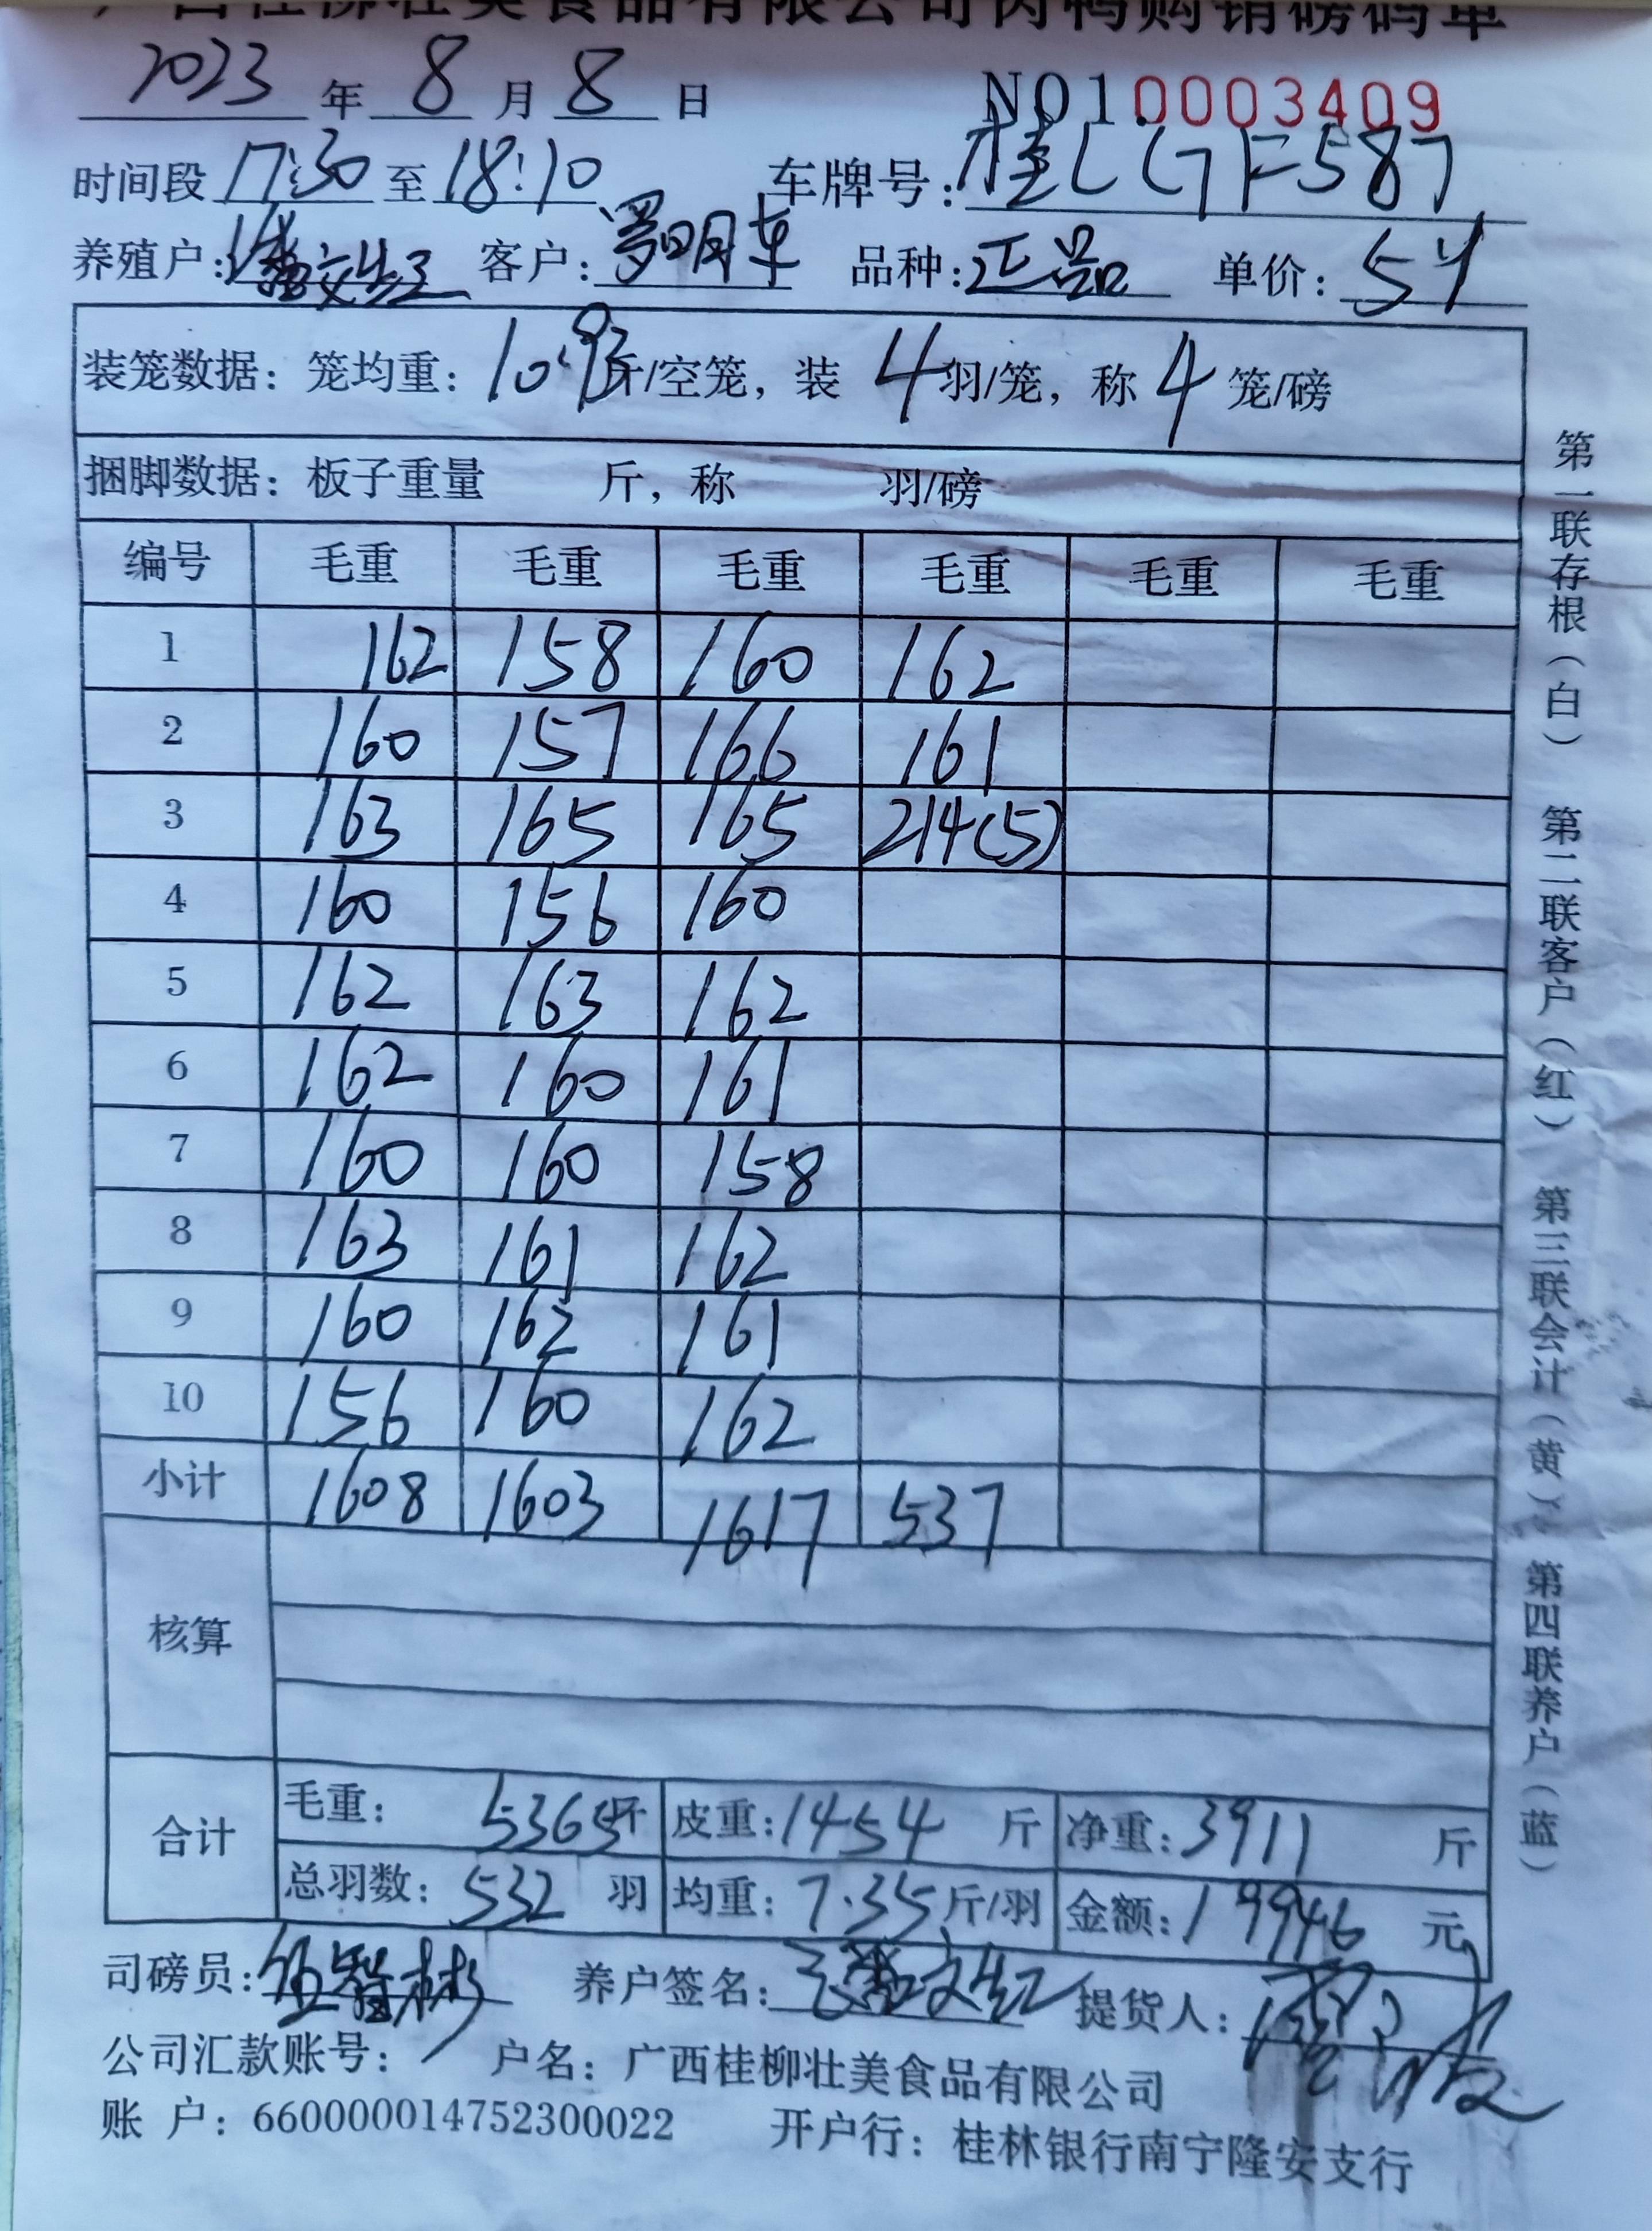 广西桂柳壮美食品有限公司肉鸭购销磅码单
2023 年 8 月 8 日 NO10003409
时间段 17:30 至 18:10 车牌号: 桂CGF587
养殖户: 客户: 罗明车 品种: 正品 单价: 51
装笼数据: 笼均重: 10.9斤/空笼, 装 4 羽/笼, 称 4 笼/磅
捆脚数据: 板子重量 斤, 称 羽/磅
编号 毛重 毛重 毛重 毛重 毛重 毛重
1 162 158 160 162
2 160 157 166 161
3 163 165 165 214(5)
4 160 156 160
5 162 163 162
6 162 160 161
7 160 160 158
8 163 161 162
9 160 162 161
10 156 160 162
小计 1608 1603 1617 537
核算
合计 毛重: 5365斤 皮重: 1454 斤 净重: 3911 斤
总羽数: 532 羽 均重: 7.35 斤/羽 金额: 19946 元
司磅员: 伍智彬 养户签名: 提货人:
公司汇款账号: 户名: 广西桂柳壮美食品有限公司
账 户: 660000014752300022 开户行: 桂林银行南宁隆安支行
第一联存根(白) 第二联客户(红) 第三联会计(黄) 第四联养户(蓝)